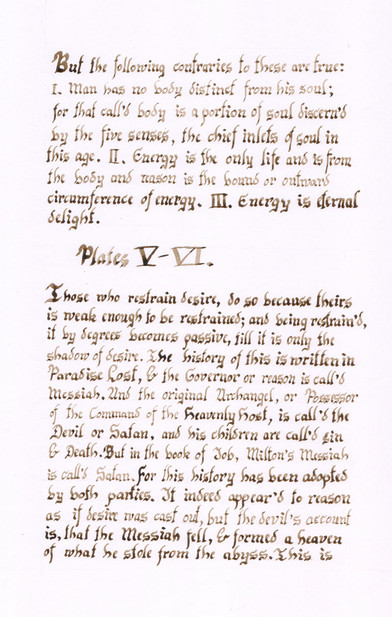 But the following contraries to these are true:
I. Man has no body distinct from his soul;
for that call'd body is a portion of soul discern'd
by the five senses, the chief inlets of soul in
this age. II. Energy is the only life and is from
the body and reason is the bound or outward
circumference of energy. III. Energy is eternal
delight.
Plates V-VI.
Those who restrain desire, do so because theirs
is weak enough to be restrained; and being restrain'd,
it by degrees becomes passive, till it is only the
shadow of desire. The history of this is written in
Paradise Lost, & the Governor or reason is call'd
Messiah. And the original Archangel, or Possessor
of the Command of the Heavenly Host, is call'd the
Devil or Satan, and his children are call'd sin
& Death. But in the book of Job, Milton's Messiah
is call'd Satan. For this history has been adopted
by both parties. It indeed appear'd to reason
as if desire was cast out, but the devil's account
is, that the Messiah fell, & formed a heaven
of what he stole from the abyss. This is